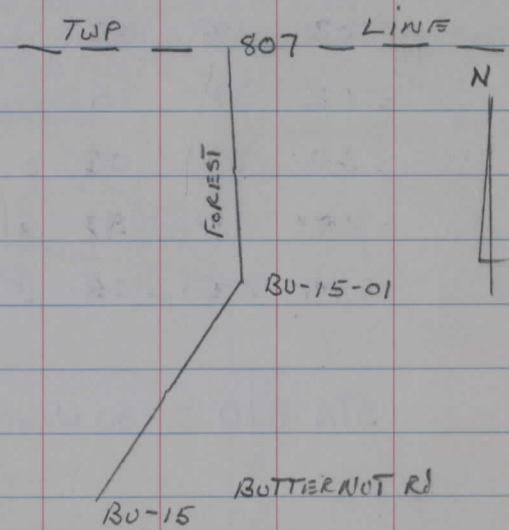 TWP 807 LINE
N
FOREST
BU-15-01
BUTTERNUT Rd
BU-15